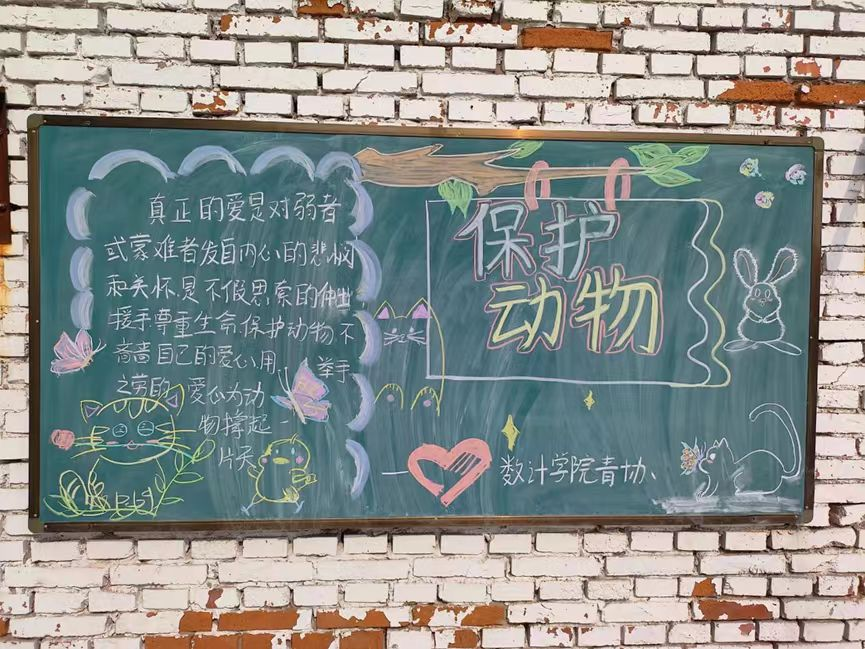 真正的爱是对弱者
或蒙难者发自内心的悲悯
和关怀.是不假思索的伸出
援手.尊重生命.保护动物.不
啬啬自己的爱心.用举手
之劳的爱心为动
物撑起一
片天
保护
动物
数计学院青协、